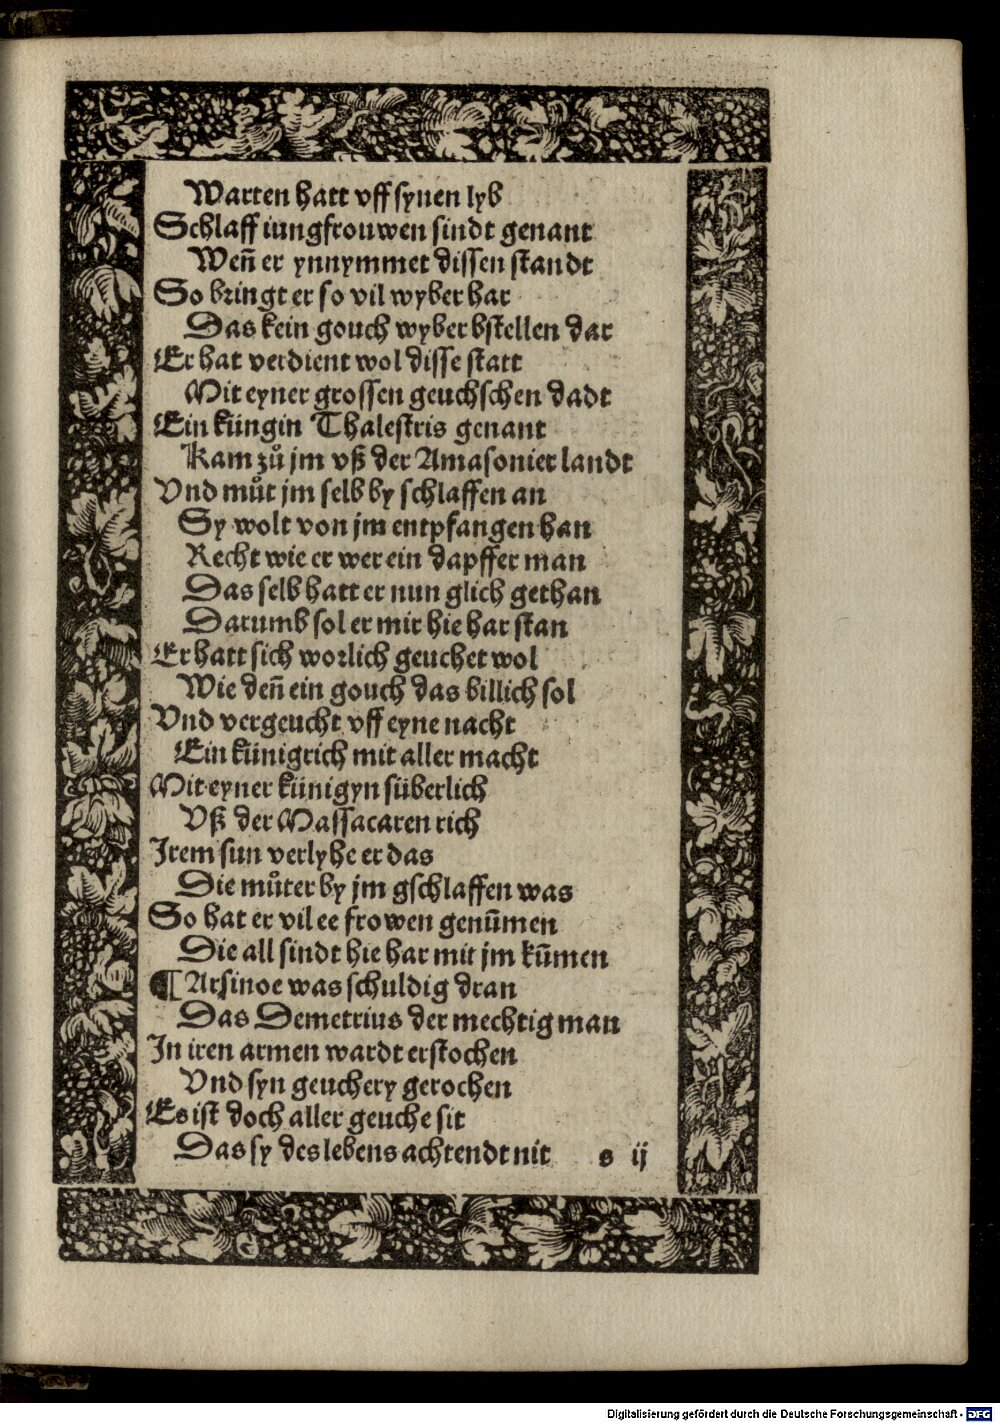 Warten hatt vff synen lyb
Schlaff iungfrouwen sindt genant
Weñ er ynnymmet dissen standt
So bringt er so vil wyber har
Das kein gouch wyber bstellen dar
Er hat verdient wol disse statt
Mit eyner grossen geuchschen dadt
Ein küngin Thalestris genant
Kam zů jm vß der Amasonier landt
Vnd můt jm selb by schlaffen an
Sy wolt von jm entpfangen han
Recht wie er wer ein dapffer man
Das selb hatt er nun glich gethan
Darumb sol er mir hie har stan
Er hatt sich worlich geuchet wol
Wie deñ ein gouch das billich sol
Vnd vergeucht vff eyne nacht
Ein künigrich mit aller macht
Mit eyner künigyn süberlich
Vß der Massacaren rich
Irem sun verlyhe er das
Die můter by jm gschlaffen was
So hat er vil ee frowen genūmen
Die all sindt hie har mit jm kūmen
¶ Arsinoe was schuldig dran
Das Demetrius der mechtig man
In iren armen wardt erstochen
Vnd syn geuchery gerochen
Es ist doch aller geuche sit
Das sy des lebens achtendt nit s ij
Digitalisierung gefördert durch die Deutsche Forschungsgemeinschaft - DFG